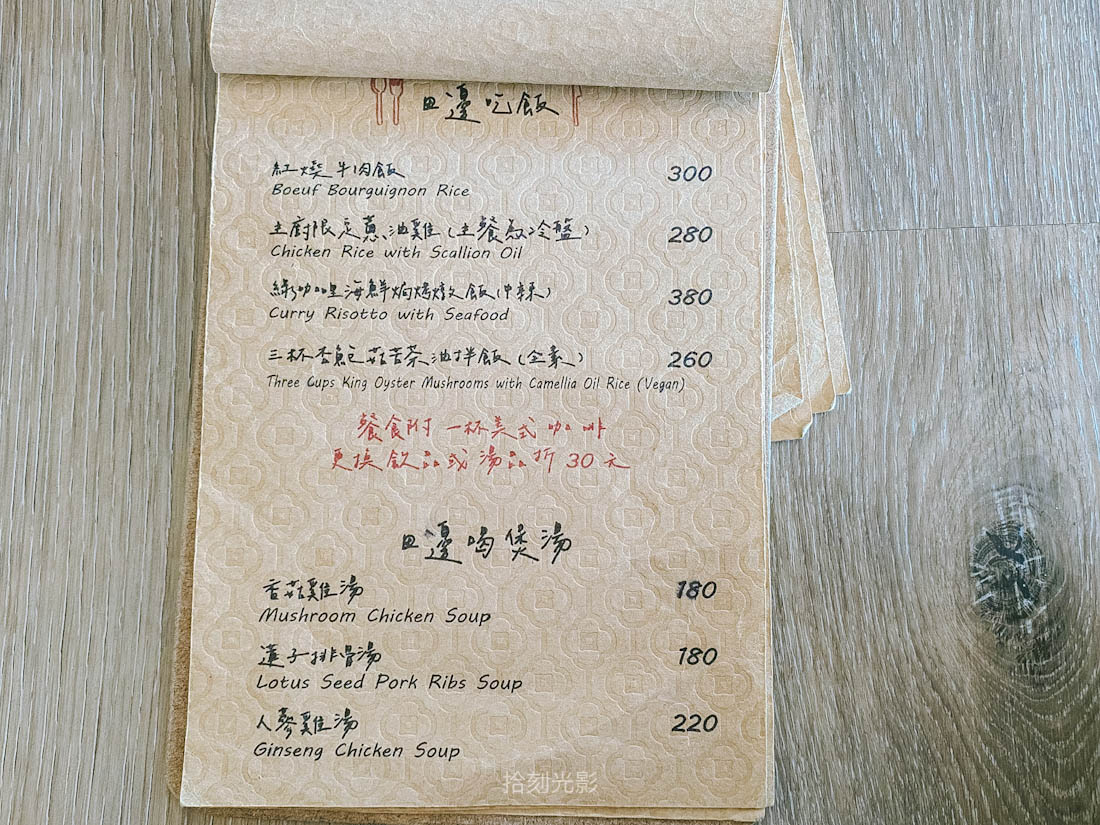 田邊吃飯
紅燒牛肉飯 300
Boeuf Bourguignon Rice
主廚限定蔥油雞(主餐為冷盤) 280
Chicken Rice with Scallion Oil
綠咖哩海鮮焗烤燉飯(中辣) 380
Curry Risotto with Seafood
三杯杏鮑菇苦茶油拌飯(全素) 260
Three Cups King Oyster Mushrooms with Camellia Oil Rice (Vegan)
餐食附一杯美式咖啡
更換飲品或湯品折30元
田邊喝煲湯
香菇雞湯 180
Mushroom Chicken Soup
蓮子排骨湯 180
Lotus Seed Pork Ribs Soup
人蔘雞湯 220
Ginseng Chicken Soup
拾刻光影